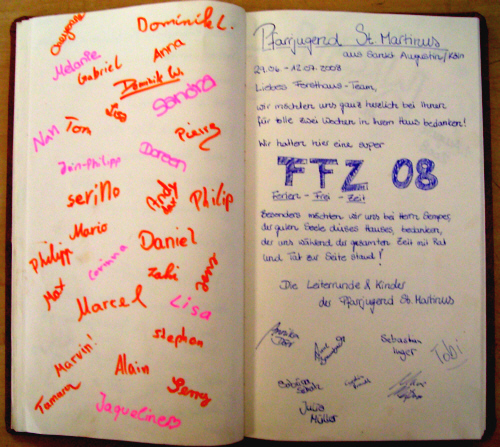 Cheyenne
Dominik L.
Melanie
Gabriel
Anna
Dominik W.
Sandra
Nan
Tom
Pierre
Jan-Philipp
Doreen
seriNo
Andy
Philip
Mario
Daniel
Philipp
Corinna
Zahi
Jenni
Max
Marcel
Lisa
stephan
Marvin!
Alain
Jenny
Tamara
Jaqueline
Pfarrjugend St. Martinus
aus Sankt Augustin/Köln
29.06 - 12.07.2008
Liebes Forsthaus-Team,
wir möchten uns ganz herzlich bei Ihnen
für tolle zwei Wochen in Ihrem Haus bedanken!
Wir hatten hier eine super
FFZ 08
Ferien - Frei - Zeit
Besonders möchten wir uns bei Herrn
der guten Seele dieses Hauses, bedanken,
der uns während der gesamten Zeit mit Rat
und Tat zur Seite stand!
Die Leiterrunde & Kinder
der Pfarrjugend St. Martinus
Sebastian
Tobi
Sabrina
Julia
Müller